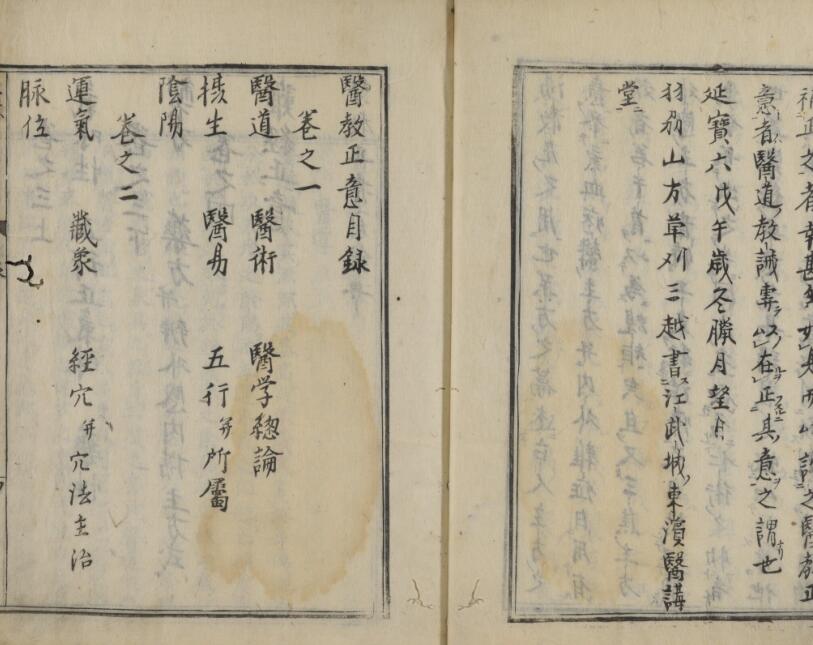 補正之者
意者醫道ノ教誡專ラ以在正其意之謂也
延寶六戊午歳冬臘月望日
羽刕山方草刈三越書ス江武城ノ東濱醫講
堂ニ
醫教正意目錄
卷之一
醫道 醫術 醫学總論
攝生 醫易 五行并所屬
陰陽
卷之二
運氣 藏象 經穴并穴法主治
脉位